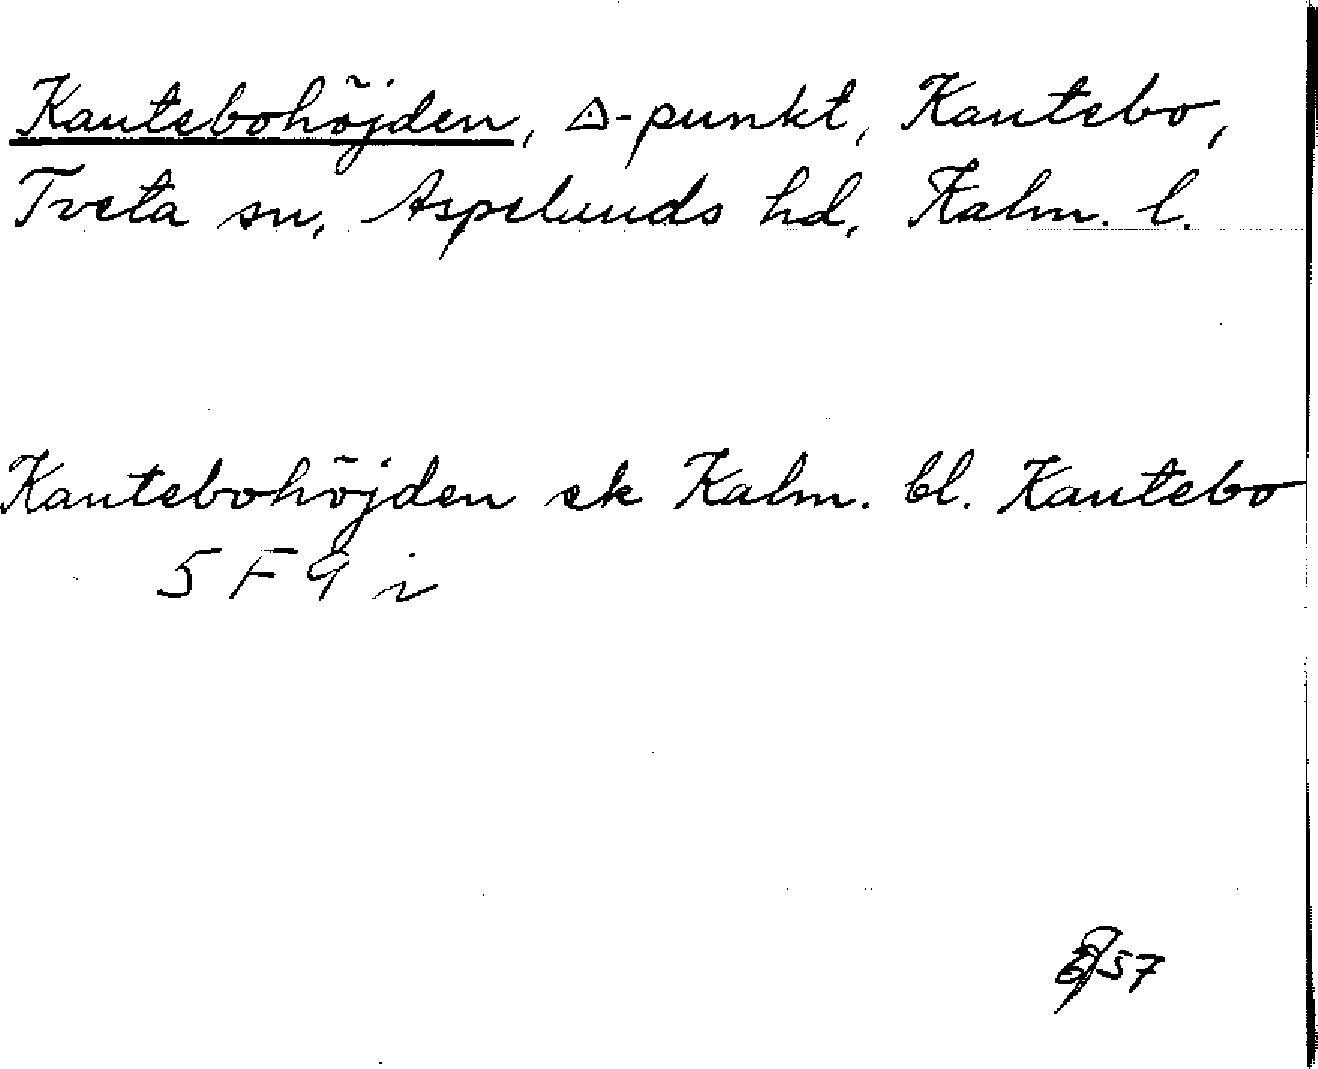 Kantebohöjden, △-punkt, Kantebo,
Tveta sn, Aspelunds hd, Kalm. l.
Kantebohöjden ek Kalm. bl. Kantebo
5 F 9 i
57